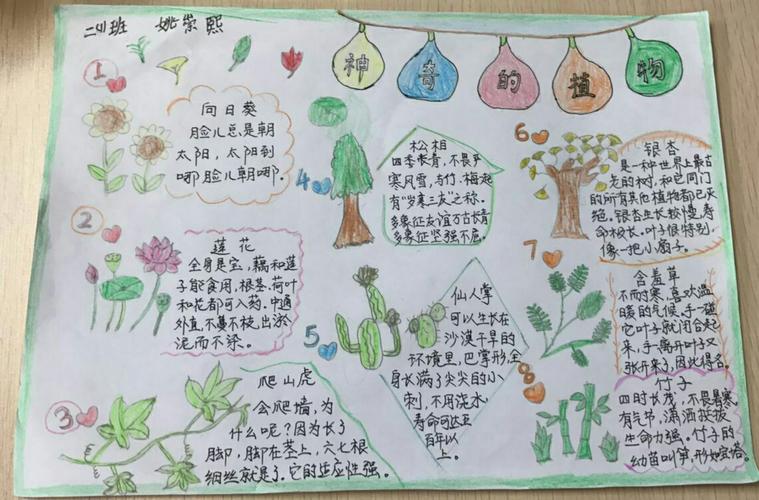 二(4)班 姚崇熙
神奇的植物
1
向日葵
脸儿总是朝
太阳，太阳到
哪脸儿朝哪。
2
莲花
全身是宝，藕和莲
子能食用，根茎、荷叶
和花都可入药。中通
外直，不蔓不枝，出淤
泥而不染。
3
爬山虎
会爬墙，为
什么呢？因为长了
脚，脚在茎上，六七根
细丝就是了。它的适应性强。
4
松柏
四季常青，不畏严
寒风雪，与竹、梅起
有"岁寒三友"之称。
多象征友谊万古长青
多象征坚强不屈。
5
仙人掌
可以生长在
沙漠干旱的
环境里，巴掌形，全
身长满了尖尖的小
刺，不用浇水，
寿命可达至
百年以
上。
6
银杏
是一种世界上最古
老的树，和它同门
的所有其他植物都已灭
绝。银杏生长较慢，寿
命极长，叶子很特别，
像一把小扇子。
7
含羞草
不耐寒，喜欢温
暖的气候，手一碰
它叶子就闭合起
来，手离开叶子又
张开来了，因此得名。
8
竹子
四时长茂，不畏暑寒，
有气节，潇洒挺拔
生命力强。竹子的
幼苗叫笋，形如宝塔。